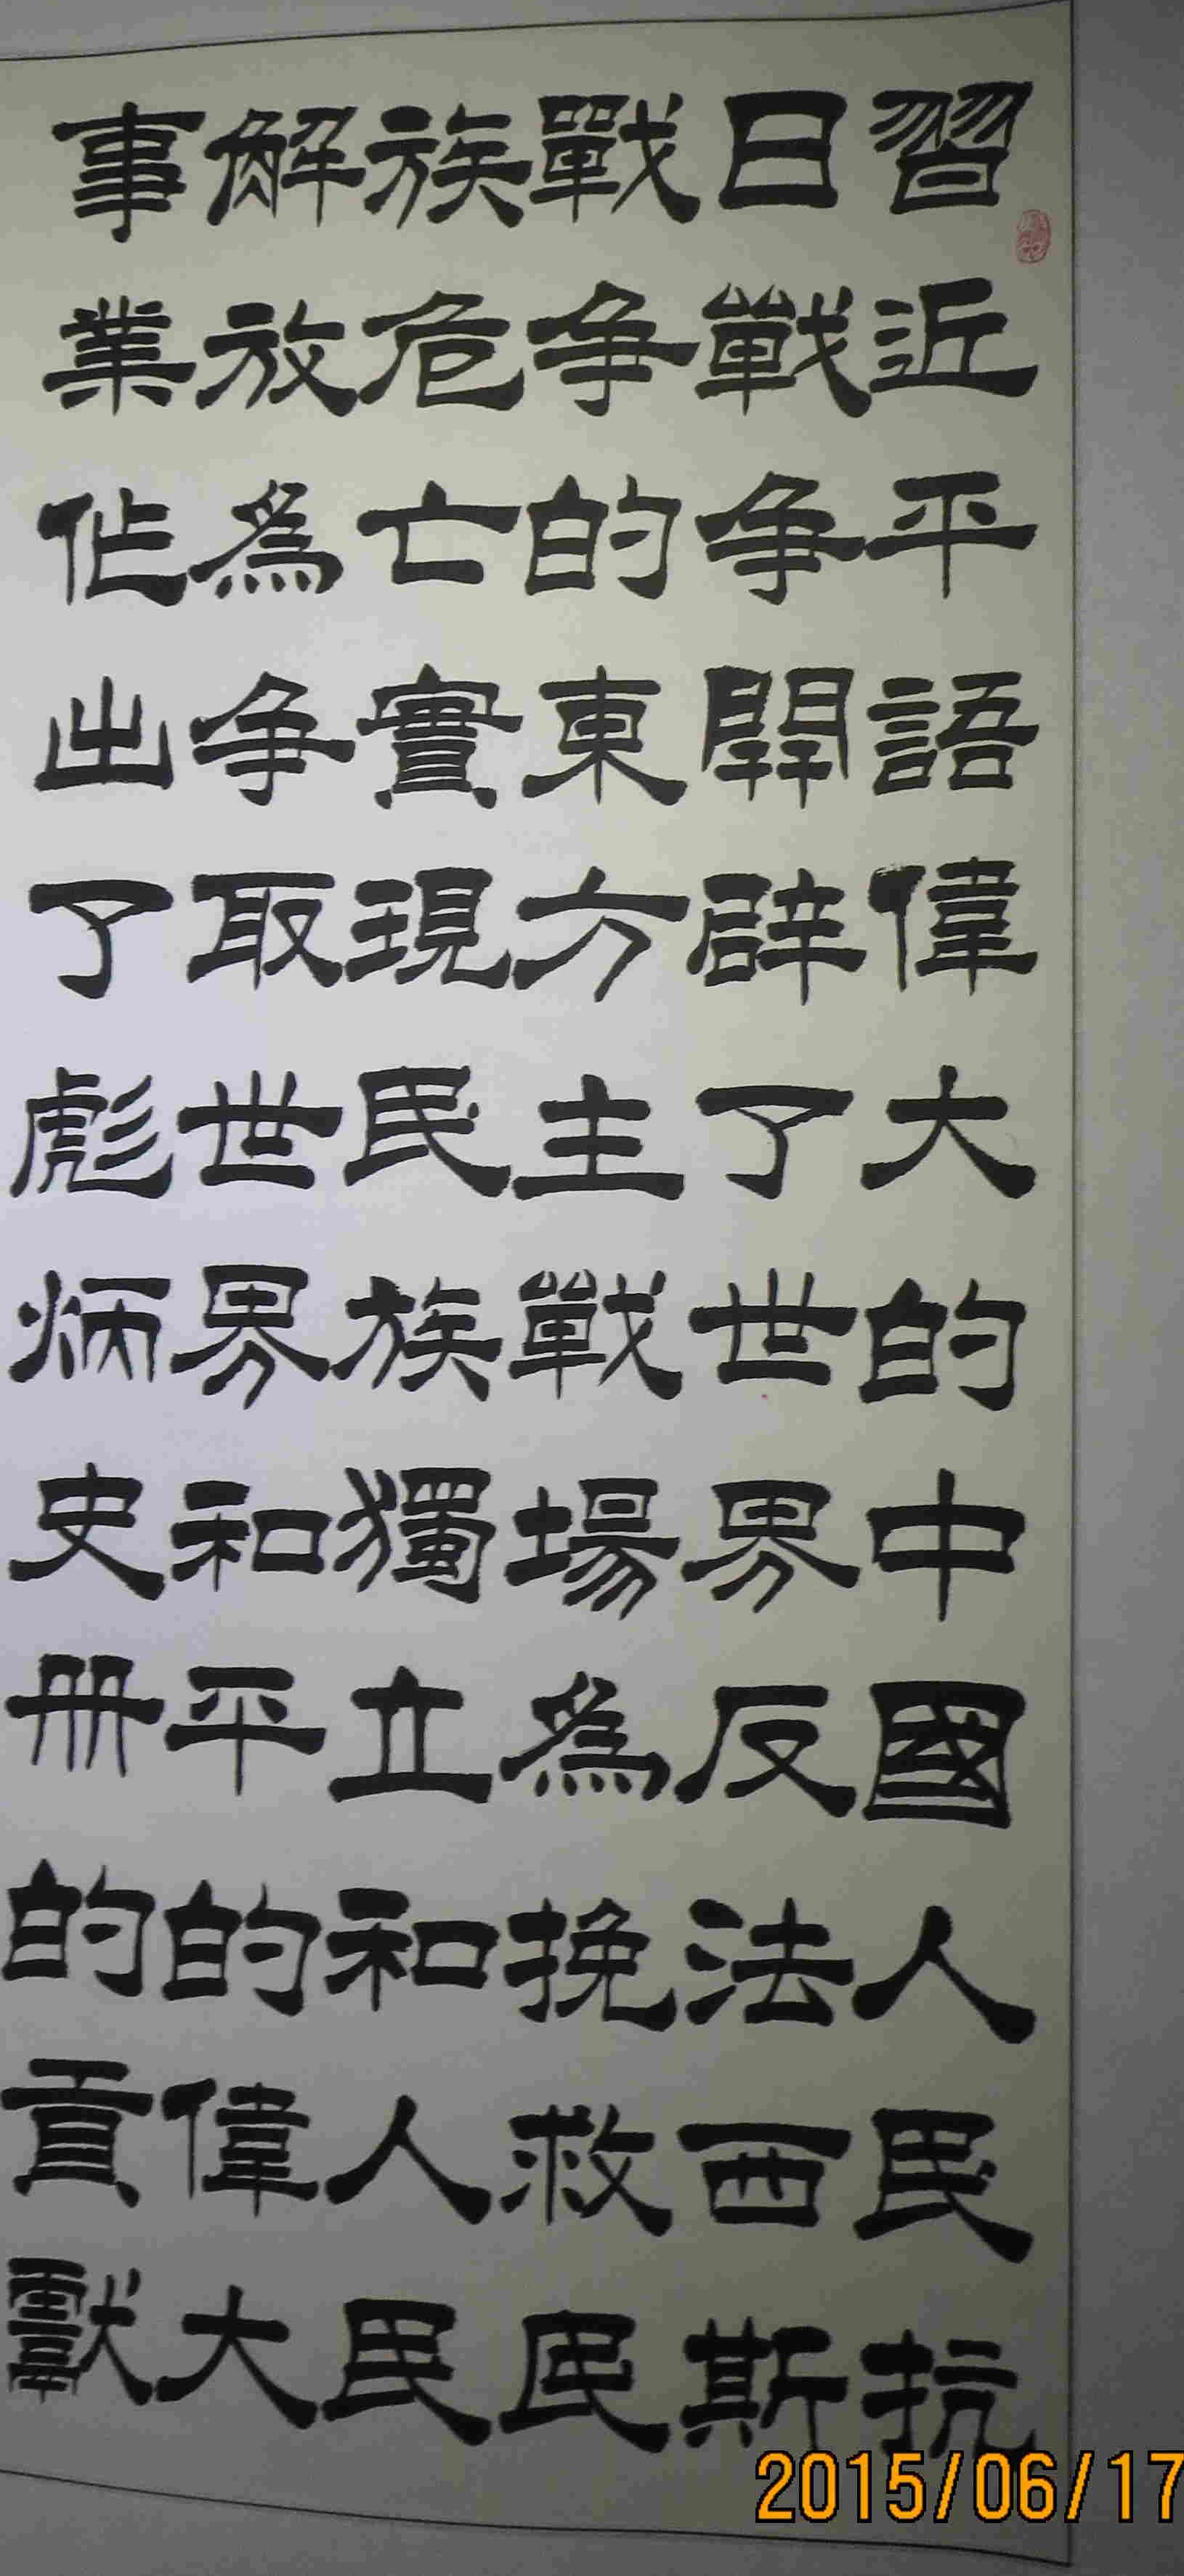 習近平語偉大的中國人民抗
日戰争開辟了世界反法西斯
戰争的東方主戰場為挽救民
族危亡實現民族獨立和人民
解放為争取世界和平的偉大
事業作出了彪炳史册的貢獻
2015/06/17